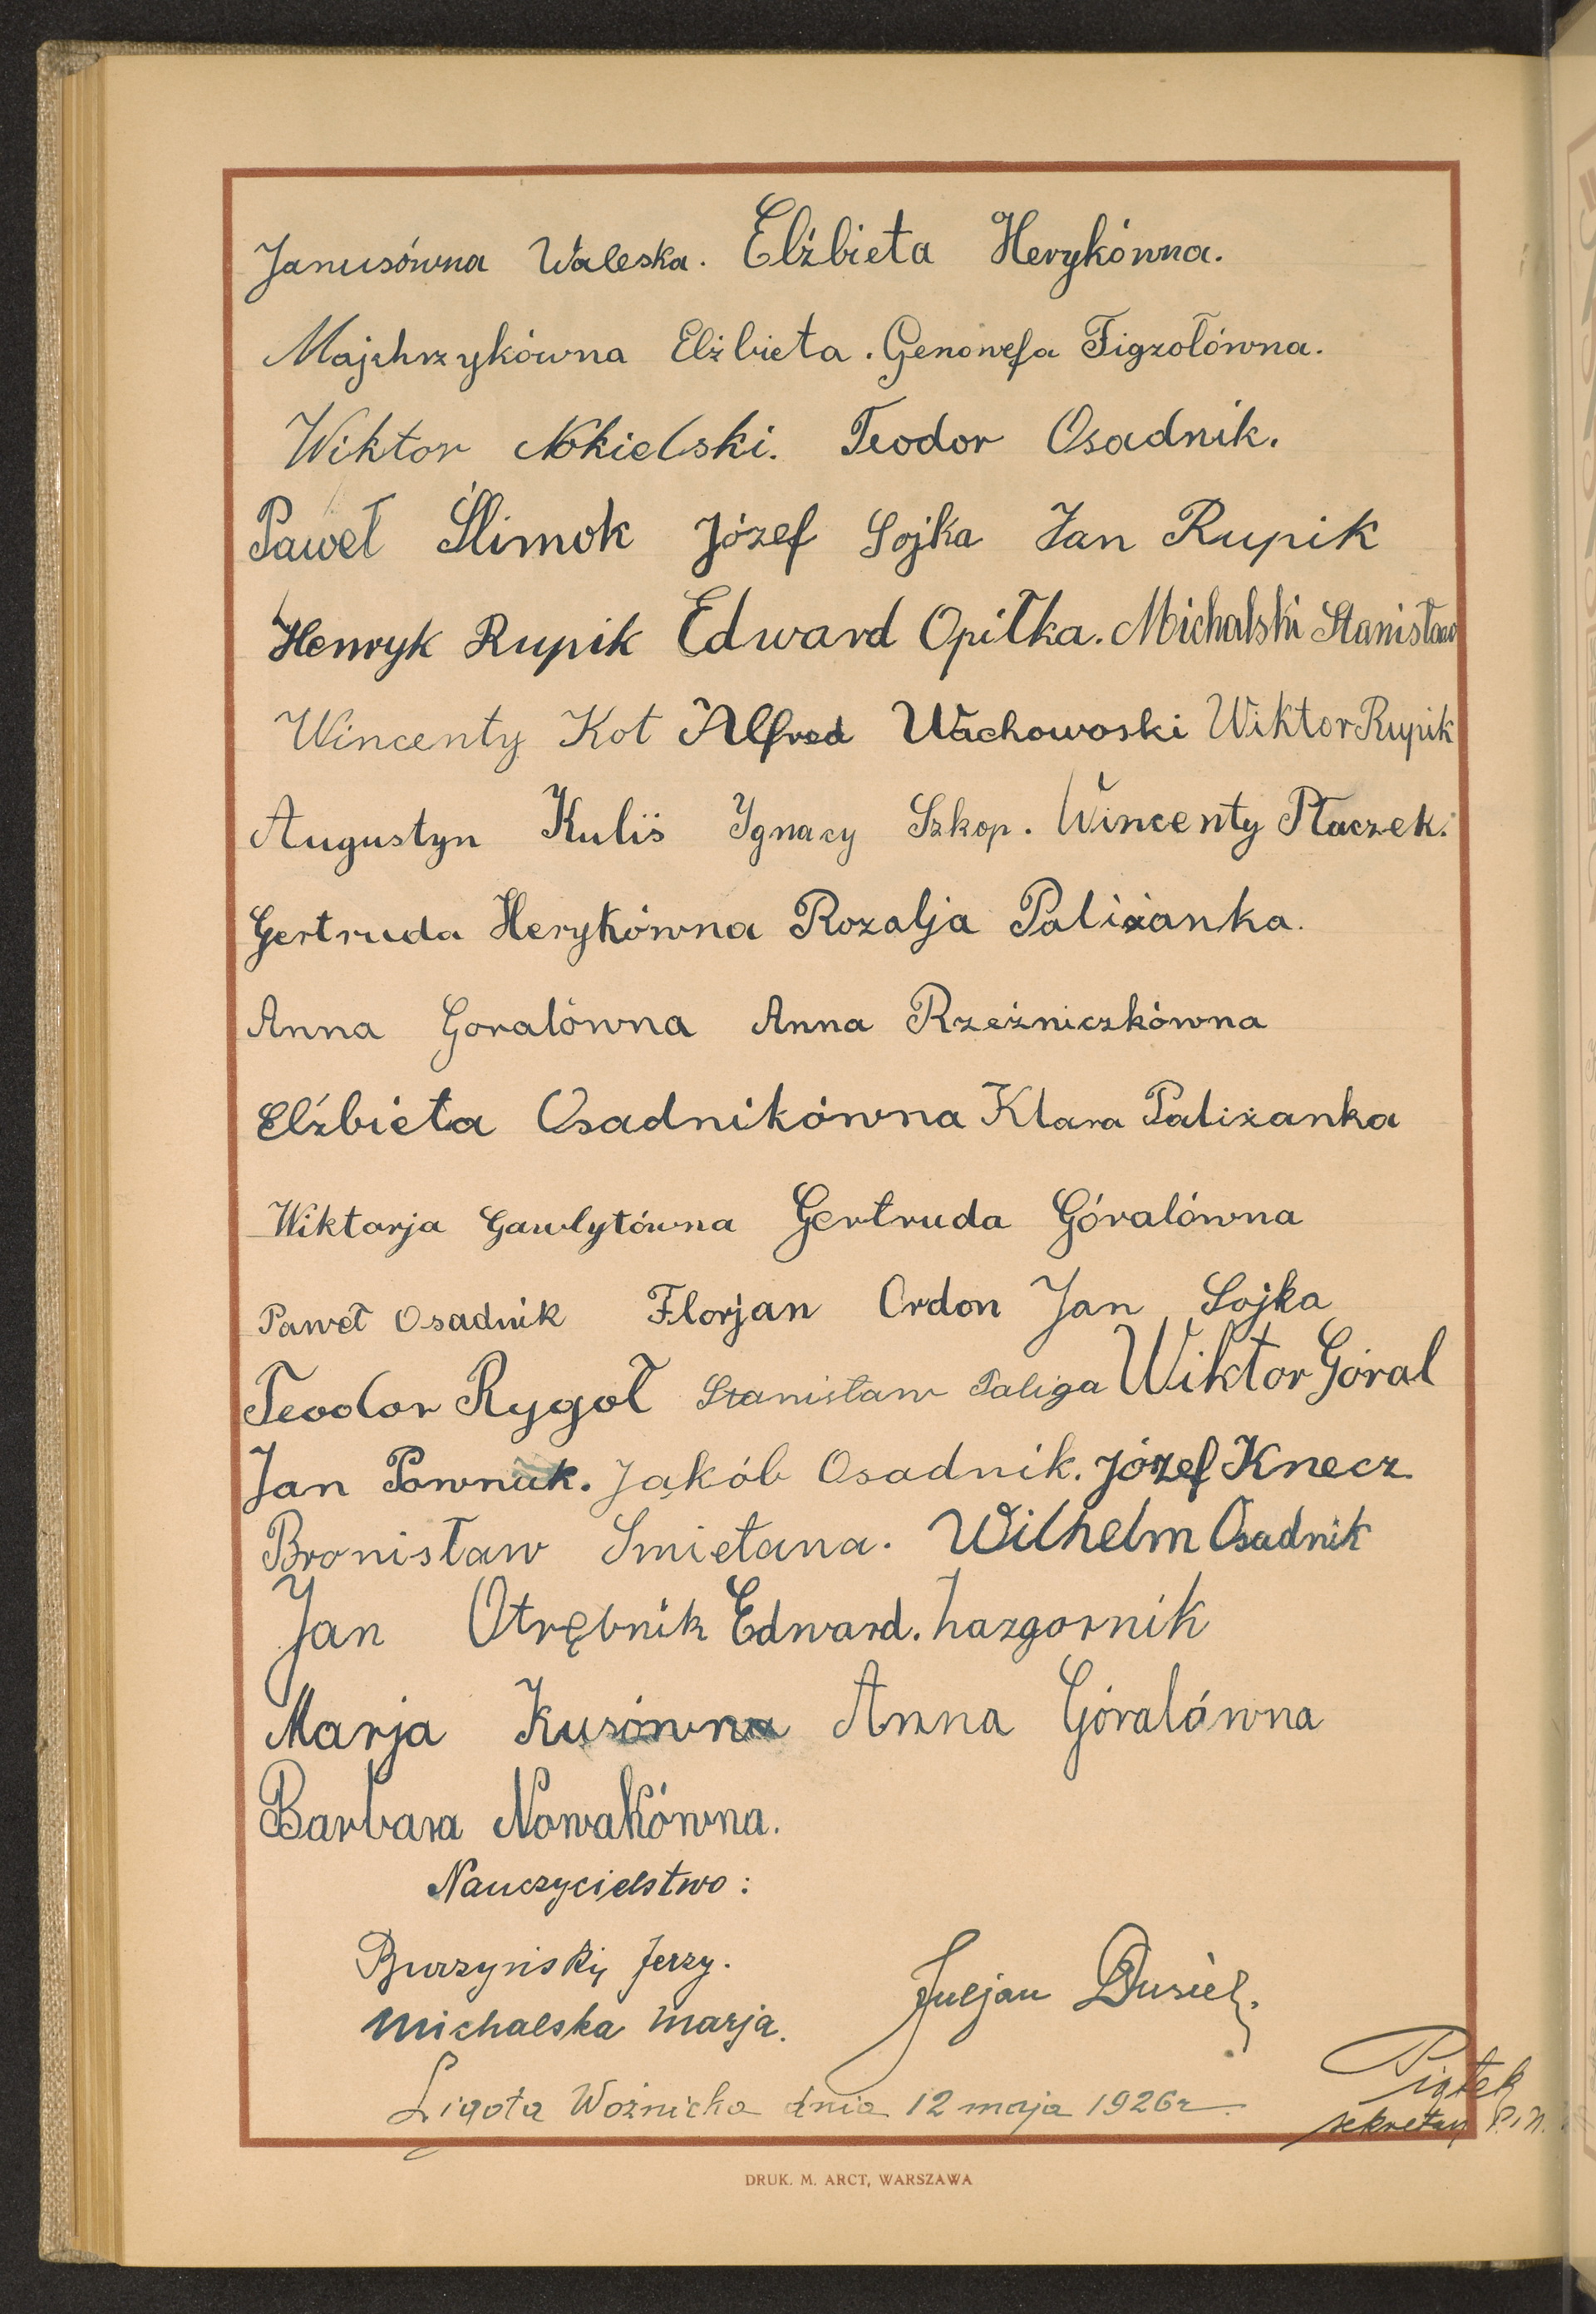 Janusówna Waleska. Elżbieta Herykówna.
Majchrzykówna Elżbieta. Genowefa Figzołówna.
Wiktor Nokielski. Teodor Osadnik.
Paweł Ślimok Józef Sojka Jan Rupik
Henryk Rupik Edward Opiłka. Michalski Stanisław
Wincenty Kot Alfred Wachowoski Wiktor Rupik
Augustyn Kuliś Ygnacy Szkop. Wincenty Płaczek.
Gertruda Herykówna Rozalja Paliżanka.
Anna Goralówna Anna Rzeźniczkówna
Elżbieta Osadnikówna Klara Paliżanka
Wiktorja Gawlytówna Gertruda Góralówna
Paweł Osadnik Florjan Ordon Jan Sojka
Teodor Rygoł Stanisław Paliga Wiktor Góral
Jan Pownuk. Jakób Osadnik. Józef Knecz
Bronisław Smietana. Wilhelm Osadnik
Jan Otrębnik Edward. hazgornik
Marja Kusówna Anna Góralówna
Barbara Nowakówna.
Nauczycielstwo:
Burzyński Jerzy.
Juljan Dusiel.
Michalska Marja.
Ligota Woźnicka dnia 12 maja 1926r.
Piątek
sekretarz
DRUK. M. ARCT, WARSZAWA